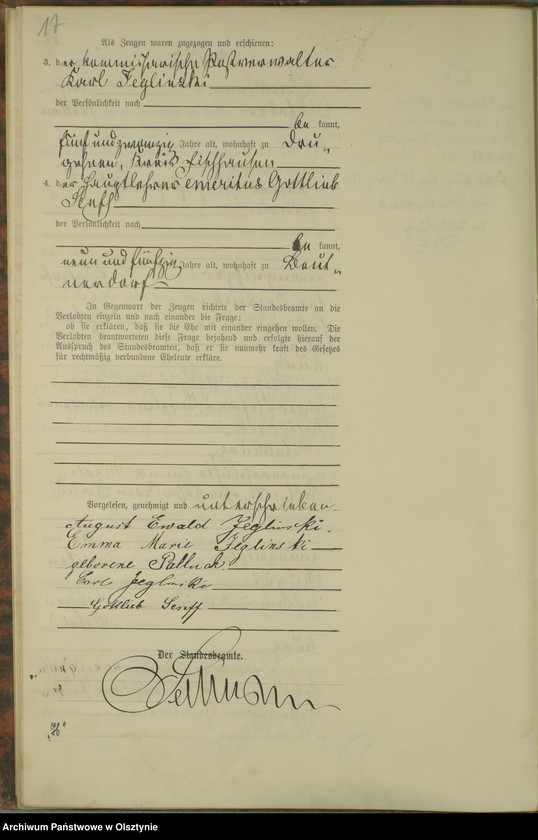 17
Als Zeugen waren zugezogen und erschienen:
3. der kommissarische Postverwalter
Karl Jeglinski
der Persönlichkeit nach
be kannt,
fünfundzwanzig Jahre alt, wohnhaft zu Dru-
gehnen, Kreis Fischhausen
4. der Hauptlehrer emeritus Gottlieb
Senff
der Persönlichkeit nach
be kannt,
neunundfünfzig Jahre alt, wohnhaft zu Beut-
nerdorf
In Gegenwart der Zeugen richtete der Standesbeamte an die
Verlobten einzeln und nach einander die Frage:
ob sie erklären, daß sie die Ehe mit einander eingehen wollen. Die
Verlobten beantworteten diese Frage bejahend und erfolgte hierauf der
Ausspruch des Standesbeamten, daß er sie nunmehr kraft des Gesetzes
für rechtmäßig verbundene Eheleute erkläre.
Vorgelesen, genehmigt und unterschrieben
August Ewald Jeglinski.
Emma Marie Jeglinski
geborene
Carl Jeglinski
Gottlieb Senff
Der Standesbeamte.
Archiwum Państwowe w Olsztynie